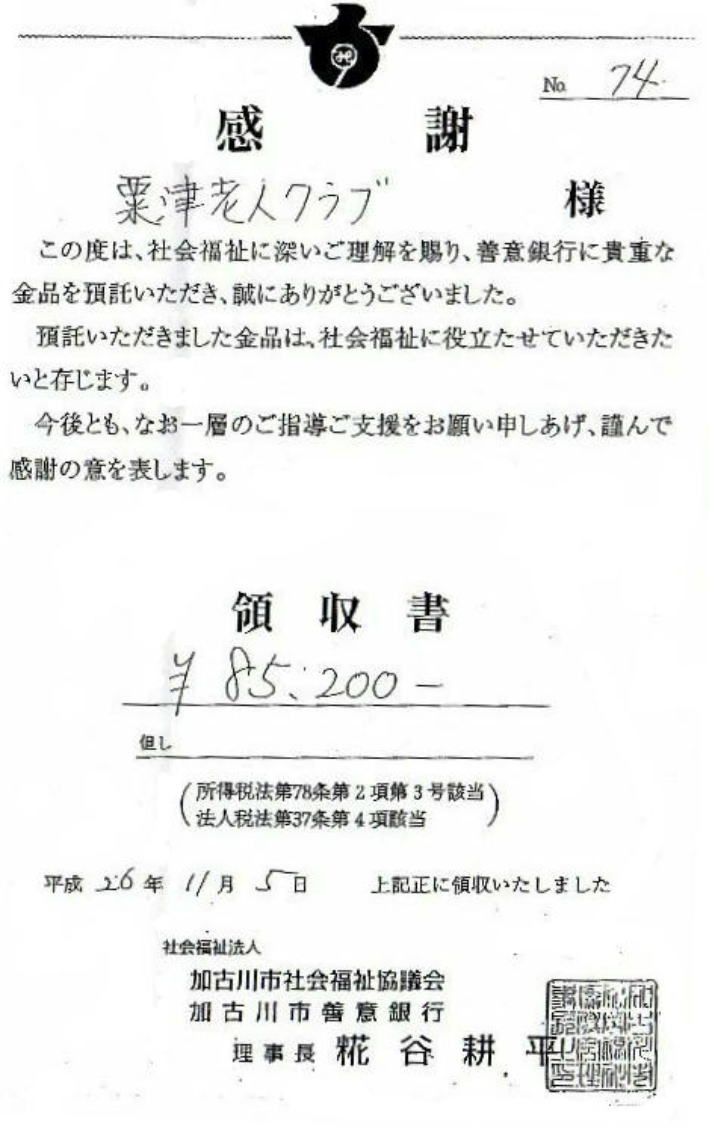 No. 74
感謝
粟津老人クラブ 様
この度は、社会福祉に深いご理解を賜り、善意銀行に貴重な
金品を預託いただき、誠にありがとうございました。
預託いただきました金品は、社会福祉に役立たせていただきた
いと存じます。
今後とも、なお一層のご指導ご支援をお願い申しあげ、謹んで
感謝の意を表します。
領収書
¥85.200-
但し
(所得税法第78条第2項第3号該当
法人税法第37条第4項該当)
平成26年11月5日 上記正に領収いたしました
社会福祉法人
加古川市社会福祉協議会
加古川市善意銀行
理事長 糀谷耕平